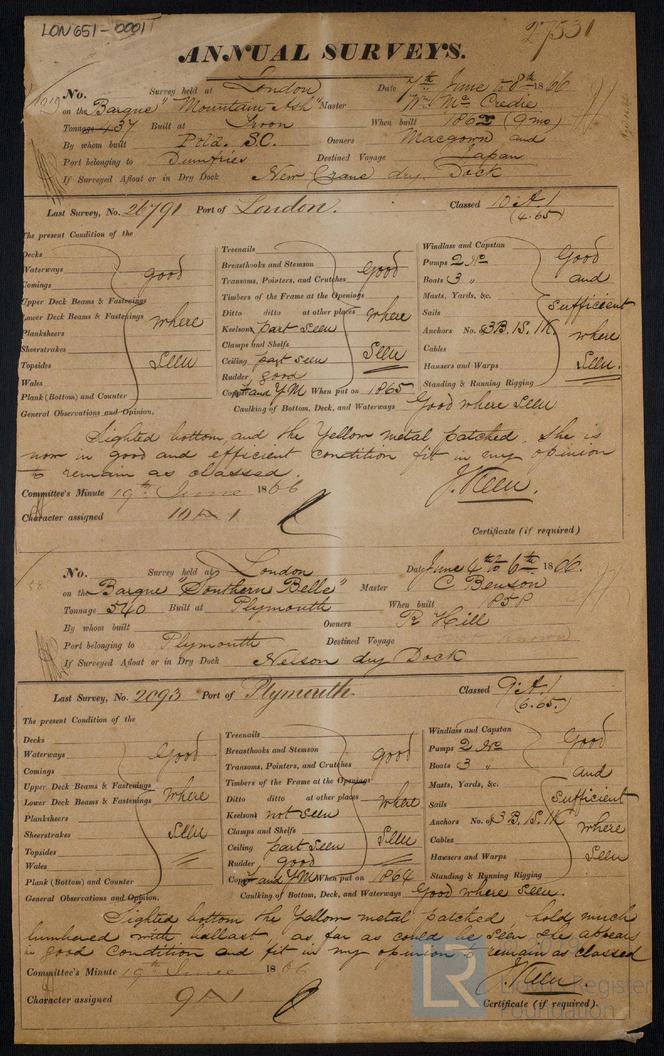 LON 651-0001
27531
ANNUAL SURVEYS.
No. Survey held at London Date 7th June to 8th 1866
on the Barque "Mountain Ash" Master Wm Mc Credie
Tonnage 437 Built at Troon When built 1862 (9mo)
By whom built Potd. S.C. Owners Macgown and
Port belonging to Dumfries Destined Voyage Japan
If Surveyed Afloat or in Dry Dock New Crane dry Dock
Last Survey, No. 26791 Port of London. Classed 10 A.1
(4.65)
The present Condition of the
Decks
Waterways
Comings
Upper Deck Beams & Fastenings
Lower Deck Beams & Fastenings
Planksheers
Sheerstrakes
Topsides
Wales
Plank (Bottom) and Counter
good
where
Seen
Treenails
Breasthooks and Stemson
Transoms, Pointers, and Crutches
Timbers of the Frame at the Openings
Ditto ditto at other places
Keelsons part seen
Clamps and Shelfs
Ceiling part seen
Rudder good
and YM When put on 1865
Good
where
Seen
Windlass and Capstan
Pumps 2 No
Boats 3 "
Masts, Yards, &c.
Sails
Anchors No. of 3B, 1S, 1K
Cables
Hawsers and Warps
Standing & Running Rigging
Good
and
Sufficient
where
Seen.
Caulking of Bottom, Deck, and Waterways Good where Seen
General Observations and Opinion.
Sighted bottom, and the Yellow metal patched. She is
now in good and efficient condition fit in my opinion
to remain as classed.
J. Keen.
Committee's Minute 19th June 1866
Character assigned 10 A 1
Certificate (if required)
No. Survey held at London Date June 4th to 6th 1866.
on the Barque "Southern Belle" Master C Benson
Tonnage 540 Built at Plymouth When built 1858
By whom built Owners R Hill
Port belonging to Plymouth Destined Voyage
If Surveyed Afloat or in Dry Dock Nelson dry Dock
Last Survey, No. 2093 Port of Plymouth. Classed 9 A.1
(6.65.)
The present Condition of the
Decks
Waterways
Comings
Upper Deck Beams & Fastenings
Lower Deck Beams & Fastenings
Planksheers
Sheerstrakes
Topsides
Wales
Plank (Bottom) and Counter
Good
where
Seen
Treenails
Breasthooks and Stemson
Transoms, Pointers, and Crutches
Timbers of the Frame at the Openings
Ditto ditto at other places
Keelsons not seen
Clamps and Shelfs
Ceiling part seen
Rudder good
and YM When put on 1864
good
where
Seen
Windlass and Capstan
Pumps 2 No
Boats 3 "
Masts, Yards, &c.
Sails
Anchors No. of 3 B, 1S, 1K
Cables
Hawsers and Warps
Standing & Running Rigging
Good
and
Sufficient
where
Seen
Caulking of Bottom, Deck, and Waterways Good where Seen.
General Observations and Opinion.
Sighted bottom the Yellow metal patched, hold much
lumbered with ballast as far as could be Seen She appears
in good Condition and fit in my opinion to remain as classed
J. Keen
Committee's Minute 19th June 1866
Character assigned 9 A 1
Certificate (if required).
LR
Lloyd's Register
Foundation